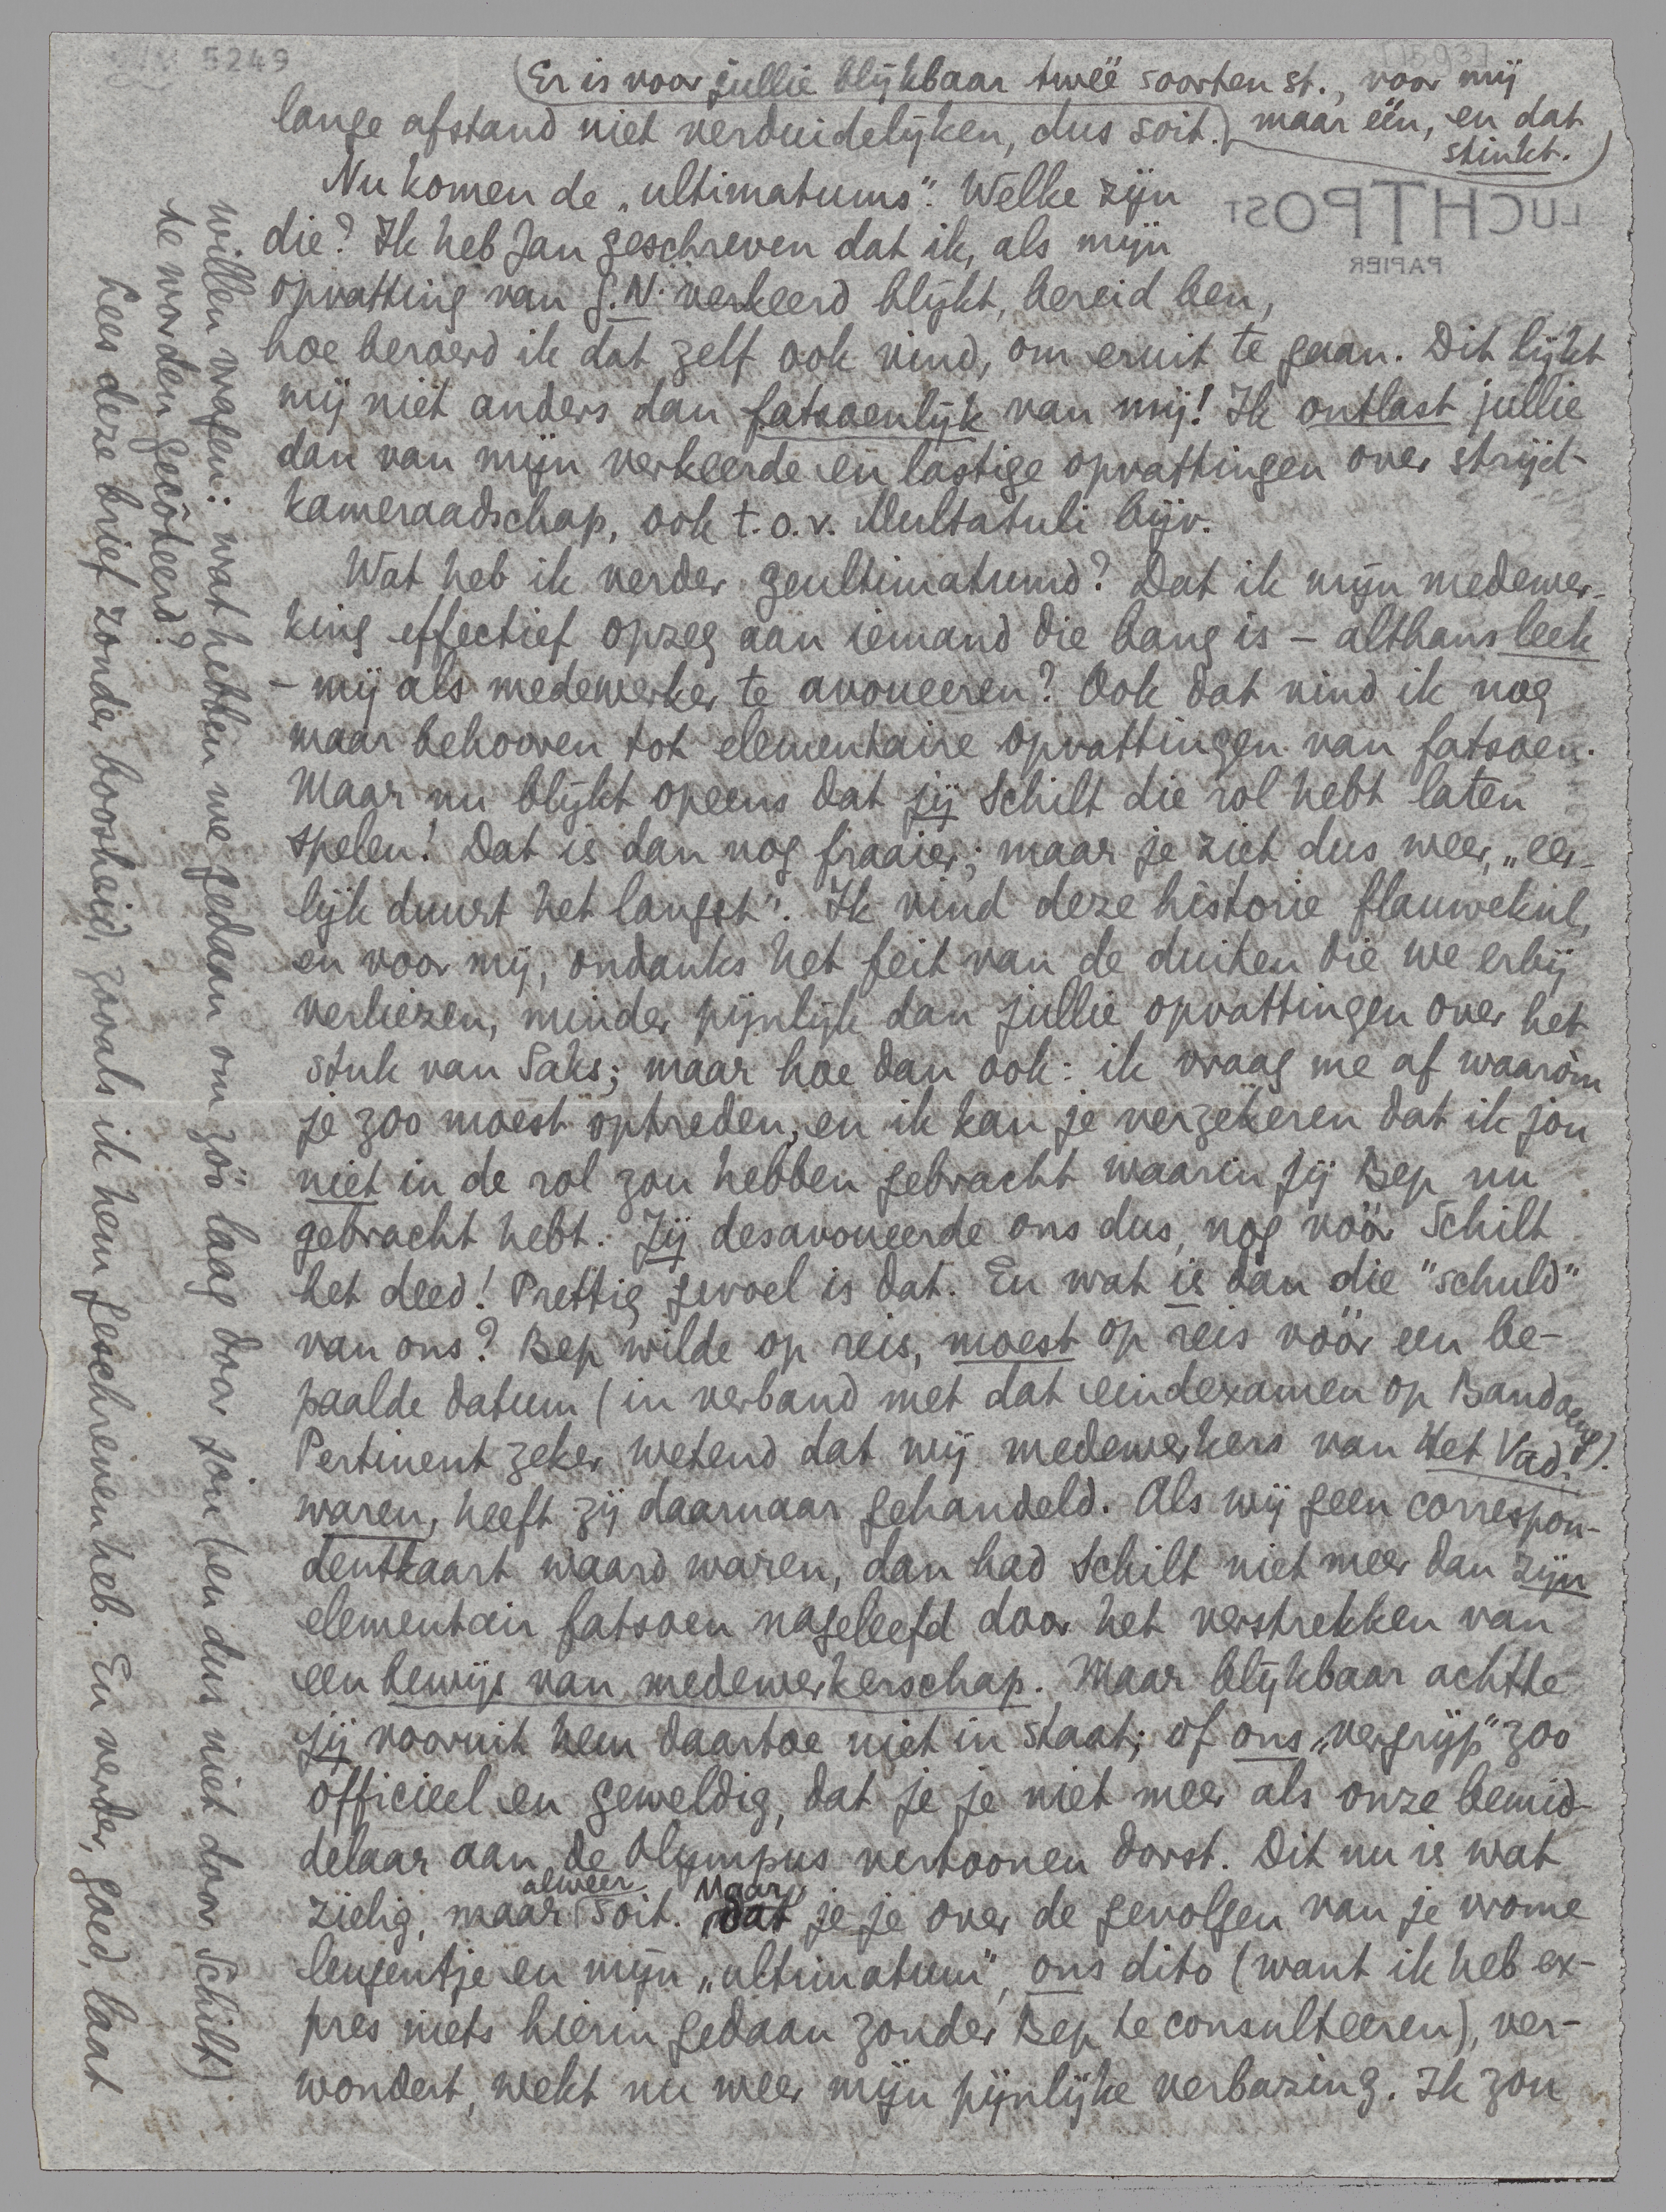 5249
(Er is voor jullie blijkbaar twéé soorten st., voor mij
maar één, en dat
stinkt.)
lange afstand niet verduidelijken, dus soit.
LUCHTPOST
PAPIER
Nu komen de „ultimatums”. Welke zijn
die? Ik heb Jan geschreven dat ik, als mijn
opvatting van G.N. verkeerd blijkt, bereid ben,
hoe beroerd ik dat zelf ook vind, om eruit te gaan. Dit lijkt
mij niet anders dan fatsoenlijk van mij! Ik ontlast jullie
dan van mijn verkeerde en lastige opvattingen over strijd-
kameraadschap, ook t.o.v. Multatuli bijv.
Wat heb ik verder geultimatumd? Dat ik mijn medewer-
king effectief opzeg aan iemand die bang is – althans leek
– mij als medewerker te avoueeren? Ook dat vind ik nog
maar behooren tot elementaire opvattingen van fatsoen.
Maar nu blijkt opeens dat jij Schilt die rol hebt laten
spelen! Dat is dan nog fraaier; maar je ziet dus weer, „eer-
lijk duurt het langst”. Ik vind deze historie flauwekul,
en voor mij, ondanks het feit van de duiten die we erbij
verliezen, minder pijnlijk dan jullie opvattingen over het
stuk van Saks; maar hoe dan ook: ik vraag me af waaròm
je zoo moest optreden, en ik kan je verzekeren dat ik jou
niet in de rol zou hebben gebracht waarin jij Bep nu
gebracht hebt. Jij desavoueerde ons dus, nog vóór Schilt
het deed! Prettig gevoel is dat. En wat is dan die "schuld"
van ons? Bep wilde op reis, moest op reis vóór een be-
paalde datum (in verband met dat eindexamen op Bandoeng).
Pertinent zeker wetend dat wij medewerkers van Het Vad.
waren, heeft zij daarnaar gehandeld. Als wij geen correspon-
dentkaart waard waren, dan had Schilt niet meer dan zijn
elementair fatsoen nageleefd door het verstrekken van
een bewijs van medewerkerschap. Maar blijkbaar achtte
jij vooruit hem daartoe niet in staat; of ons „vergrijp” zoo
officieel en geweldig, dat je je niet meer als onze bemid-
delaar aan de Olympus vertoonen dorst. Dit nu is wat
zielig, maar alweer soit. Maar je je over de gevolgen van je vrome
leugentje en mijn „ultimatum”, ons dito (want ik heb ex-
pres niets hierin gedaan zonder Bep te consulteeren), ver-
wondert, wekt nu weer mijn pijnlijke verbazing. Ik zou
willen vragen: wat hebben we gedaan om zóó laag door jou (en dus niet door Schilt)
te worden gecôteerd?
Lees deze brief zonder boosheid, zooals ik hem geschreven heb. En verder, goed, laat